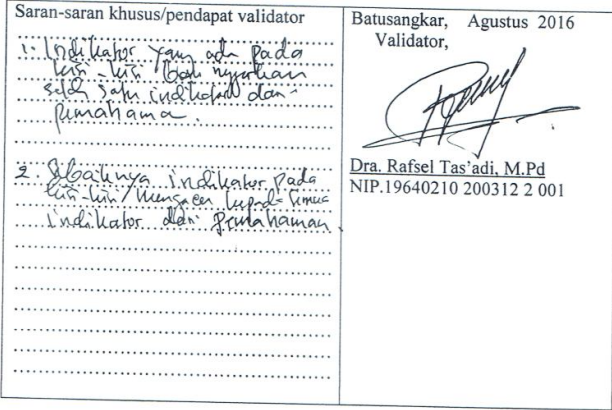 Saran-saran khusus/pendapat validator
1. Indikator yang ada pada
kisi-kisi
salah satu indikator dari
pemahama.
2. Sebaiknya indikator pada
kisi-kisi mengacu kepada semua
indikator dari pemahaman.
Batusangkar, Agustus 2016
Validator,
Dra. Rafsel Tas'adi, M.Pd
NIP.19640210 200312 2 001